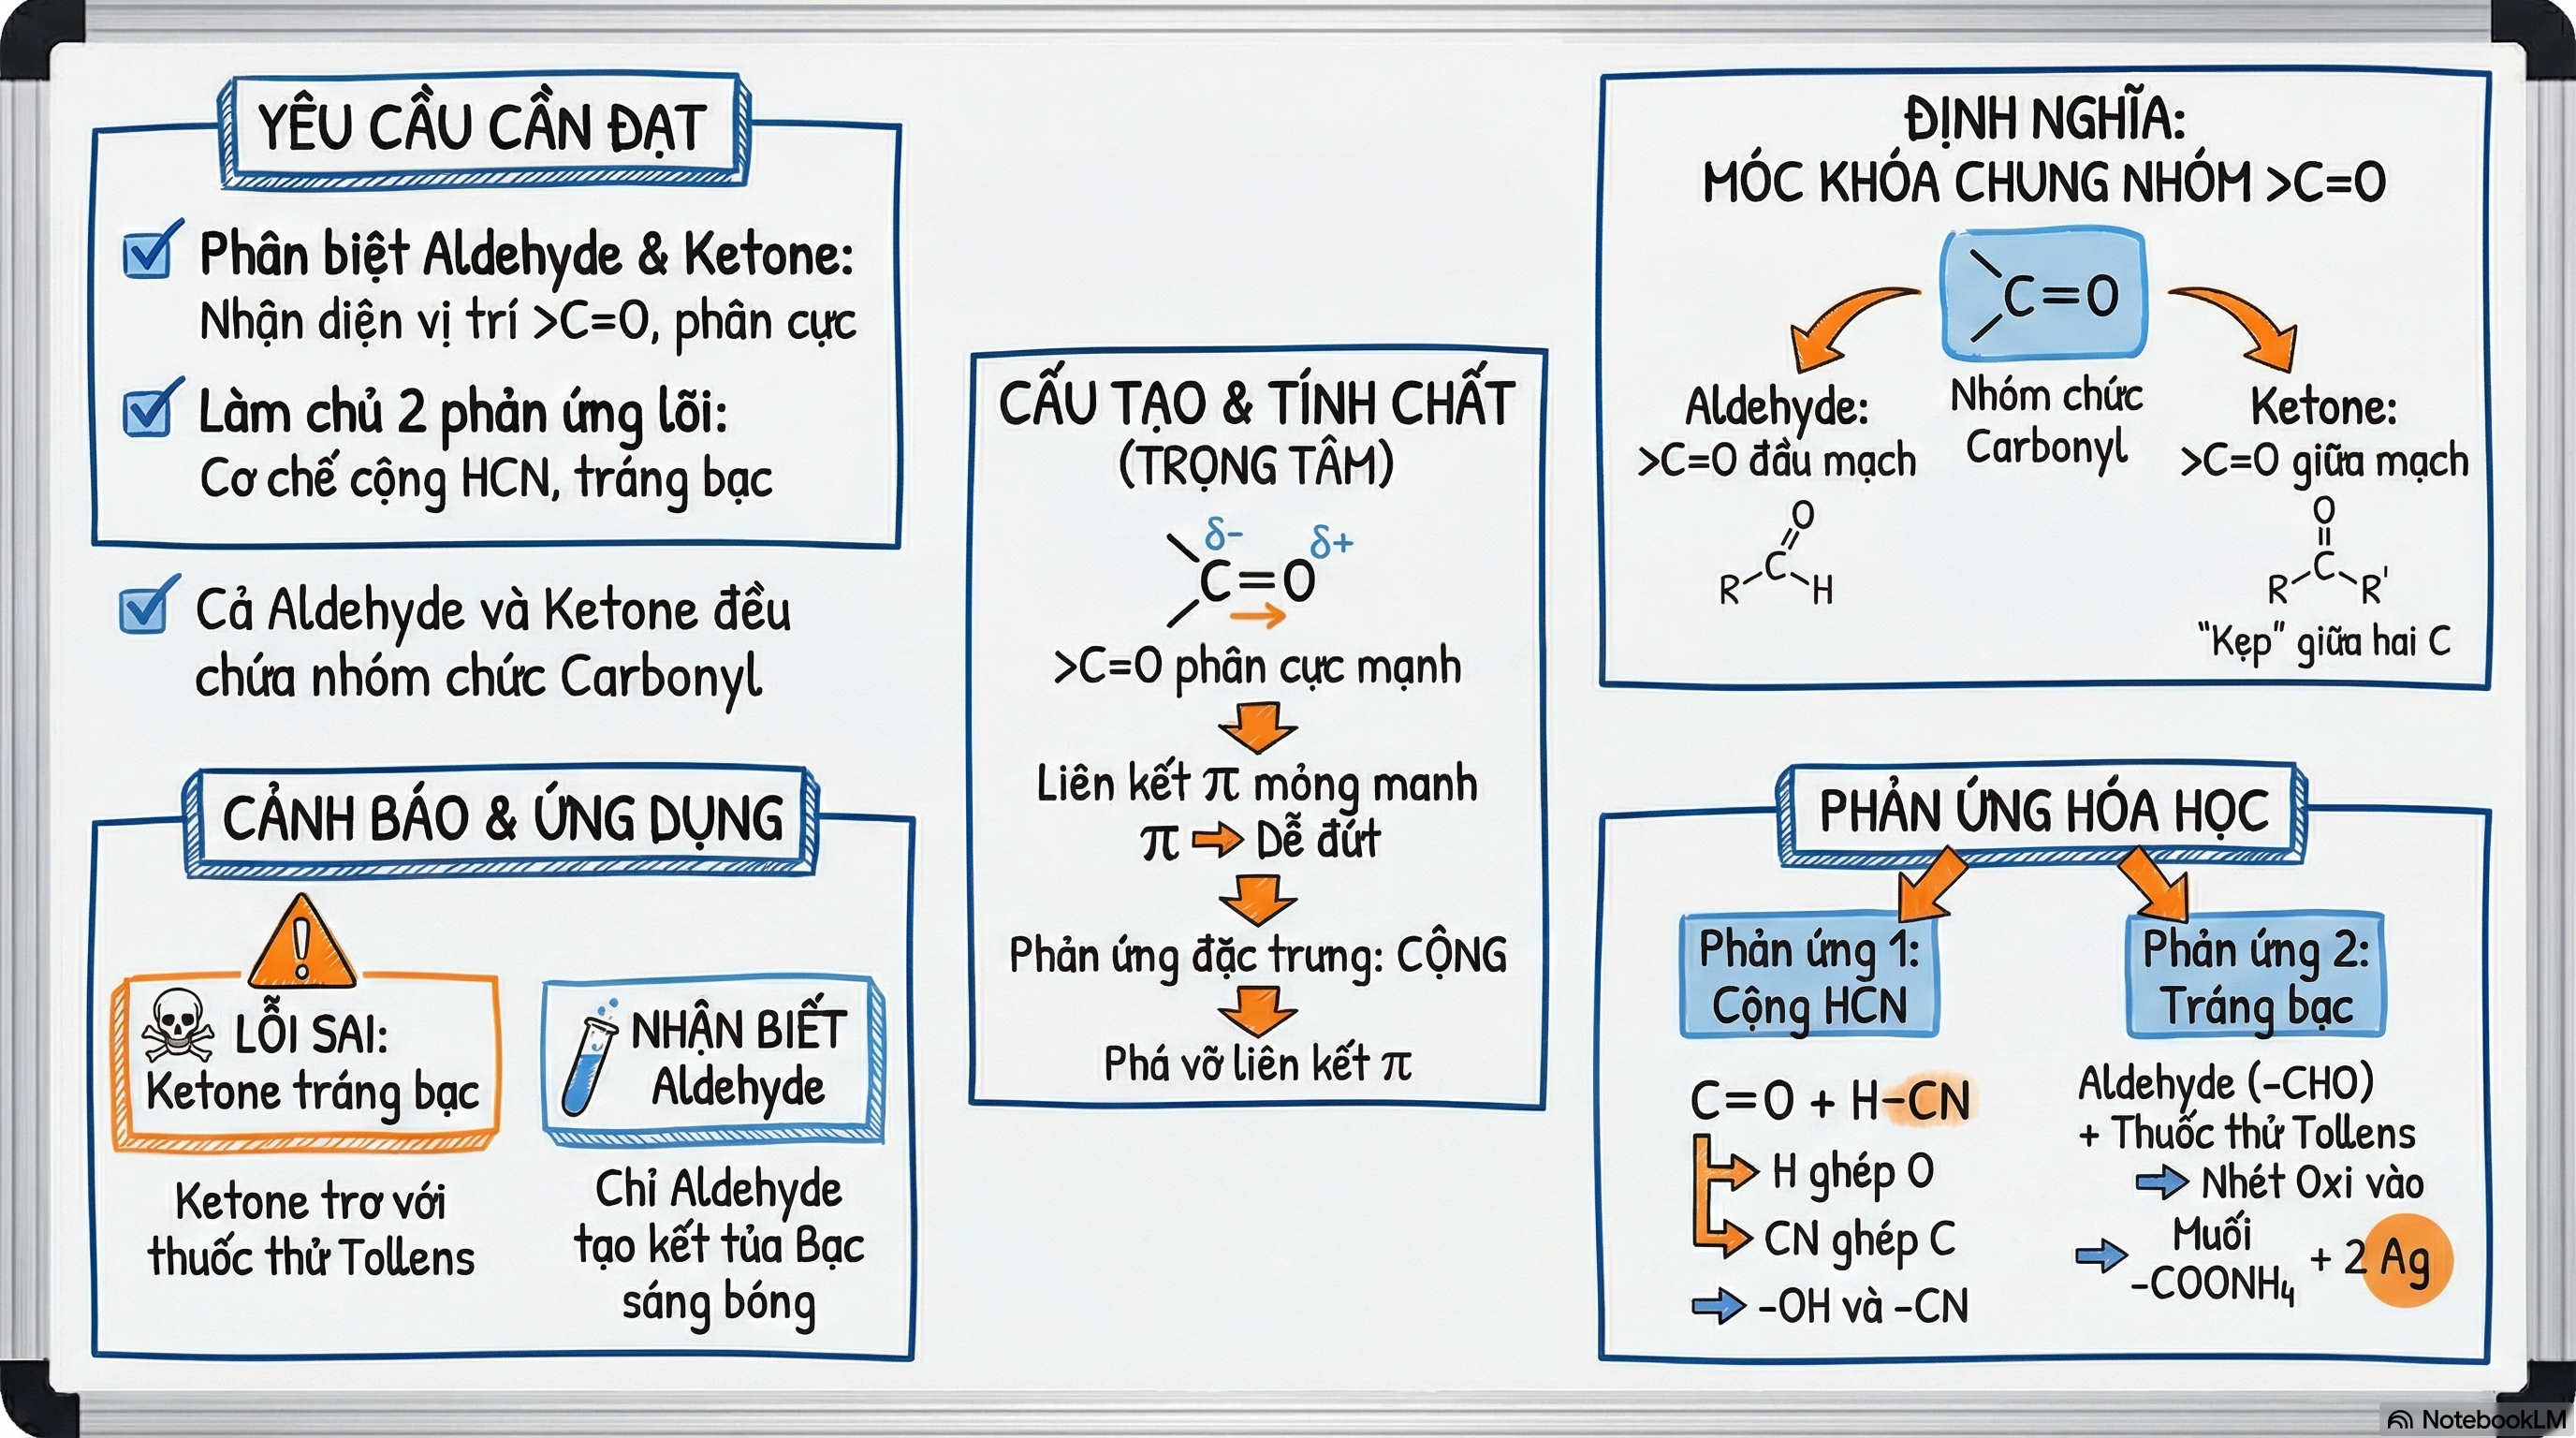 YÊU CẦU CẦN ĐẠT
Phân biệt Aldehyde & Ketone:
Nhận diện vị trí >C=O, phân cực
Làm chủ 2 phản ứng lõi:
Cơ chế cộng HCN, tráng bạc
Cả Aldehyde và Ketone đều
chứa nhóm chức Carbonyl
CẢNH BÁO & ỨNG DỤNG
LỖI SAI:
Ketone tráng bạc
Ketone trơ với
thuốc thử Tollens
NHẬN BIẾT
Aldehyde
Chỉ Aldehyde
tạo kết tủa Bạc
sáng bóng
CẤU TẠO & TÍNH CHẤT
(TRỌNG TÂM)
δ- δ+
C=O
>C=O phân cực mạnh
Liên kết π mỏng manh
π ➡ Dễ đứt
Phản ứng đặc trưng: CỘNG
Phá vỡ liên kết π
ĐỊNH NGHĨA:
MÓC KHÓA CHUNG NHÓM >C=O
C=O
Nhóm chức
Carbonyl
Aldehyde:
>C=O đầu mạch
O
C
R H
Ketone:
>C=O giữa mạch
O
C
R R'
"Kẹp" giữa hai C
PHẢN ỨNG HÓA HỌC
Phản ứng 1:
Cộng HCN
C=O + H-CN
H ghép O
CN ghép C
➡ -OH và -CN
Phản ứng 2:
Tráng bạc
Aldehyde (-CHO)
+ Thuốc thử Tollens
➡ Nhét Oxi vào
➡ Muối
-COONH₄ + 2 Ag
NotebookLM